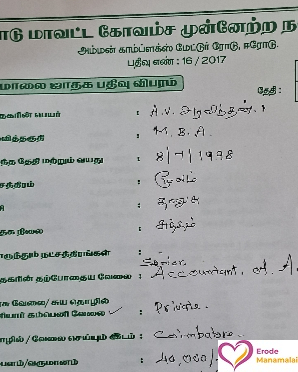 டு மாவட்ட கோவம்ச முன்னேற்ற ந
அம்மன் காம்ப்ளக்ஸ் மேட்டூர் ரோடு, ஈரோடு.
பதிவு எண் : 16 / 2017
மாலை ஜாதக பதிவு விபரம்
தேதி :
தகரின் பெயர் : A.V. அரவிந்தன்.
வித்தகுதி : M.B.A.
ந்த தேதி மற்றும் வயது : 8/7/1998
சத்திரம் : மூலம்
சி : தனுசு
தக நிலை :
ருந்தும் நட்சத்திரங்கள் :
தகரின் தற்போதைய வேலை : Senior Accountant,
சு வேலை/சுய தொழில்
யார் கம்பெனி வேலை ✓ : Private.
ழில் / வேலை செய்யும் இடம் : Coimbatore.
பளம்/வருமானம் : 40,000/-
Erode
Manamalai